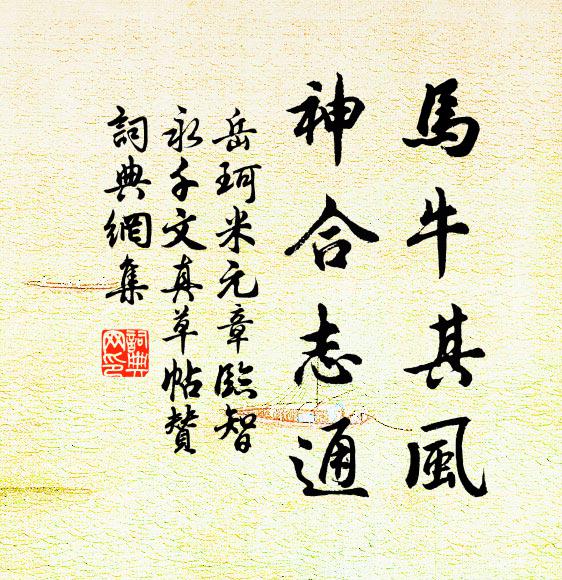 馬牛其風
神合志通
岳珂米元章臨智
永千文真草帖贊
詞典網集
詞典
网印